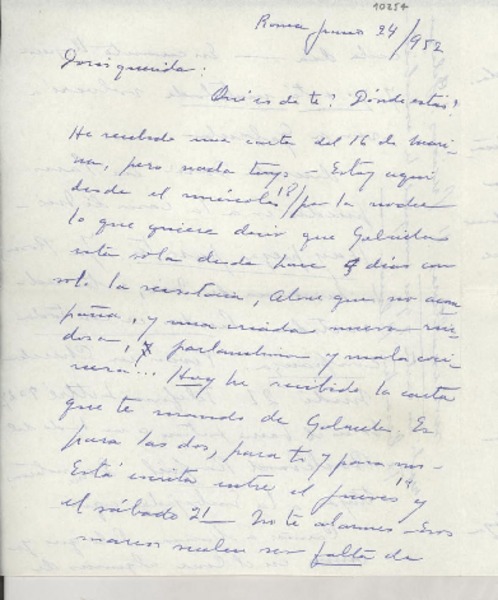 10254
Roma junio 24/952
Doris querida:
Qué es de ti? Dónde estás?
He recibido una carta del 16 de Mari-
na, pero nada tuyo — Estoy aquí
desde el miércoles 18/por la noche
lo que quiere decir que Gabriela
está sola desde hace días con
sola la secretaria, Alone que no acom
paña, y una criada nueva rui-
dosa, parlanchina y mala coci-
nera!.. Hoy he recibido la carta
que te mando de Gabriela. Es
para las dos, para ti y para mí —
Está escrita entre el jueves 19 y
el sábado 21 — No te alarmes — Esos
mareos suelen ser falta de